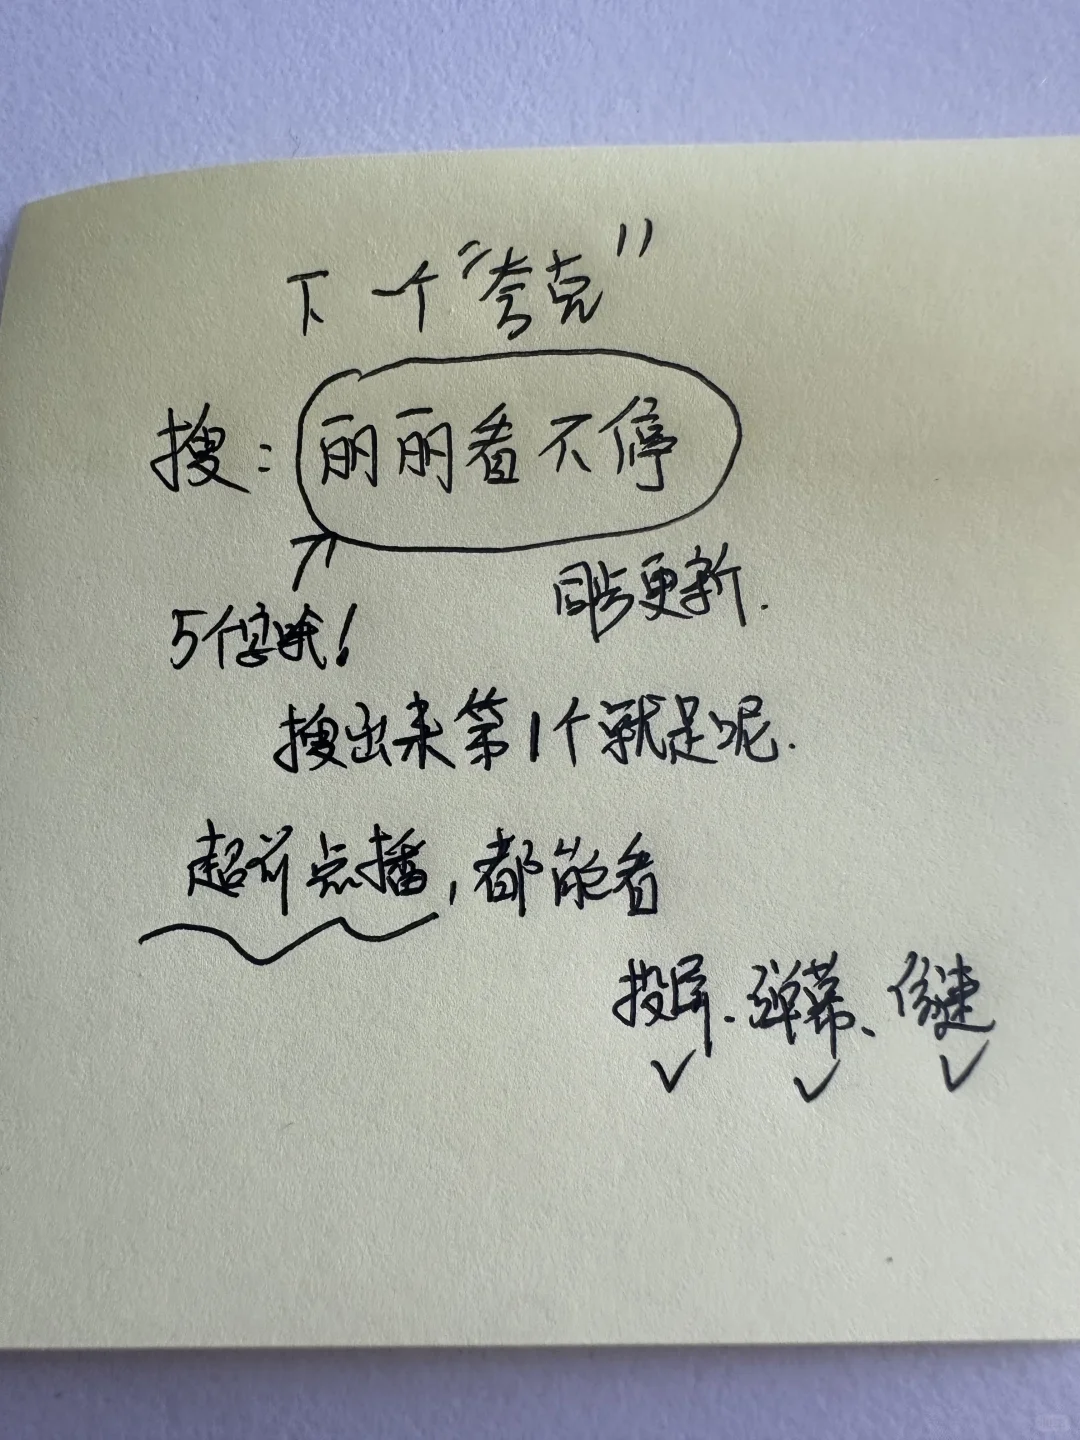 下一个“夸克”
搜：丽丽看不停
同步更新.
5个字哦！
搜出来第1个就是呢.
超前点播，都能看
投屏、弹幕、倍速